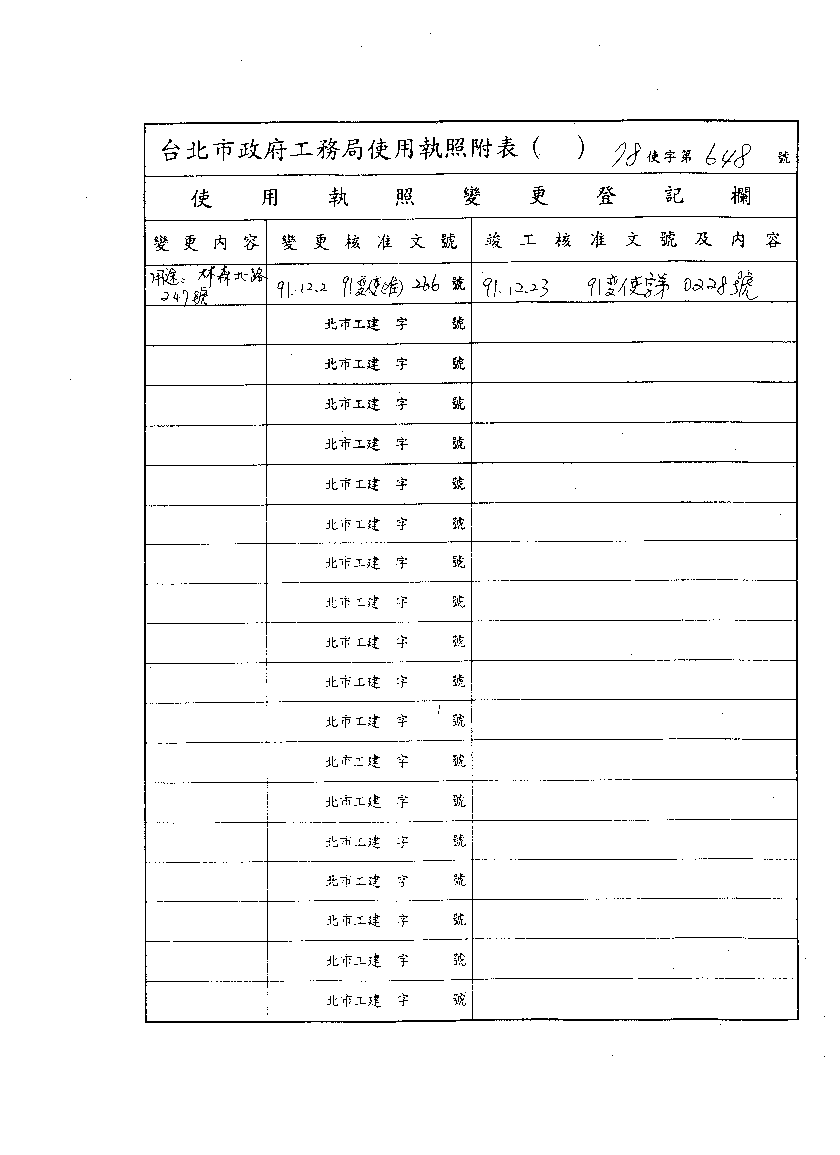 台北市政府工務局使用執照附表( ) 78使字第648號
使用執照變更登記欄
變更內容 變更核准文號 竣工核准文號及內容
用途：林森北路 91.12.2 91変使(准)266號 91.12.23 91変使字第0228號
247號
北市工建 字 號
北市工建 字 號
北市工建 字 號
北市工建 字 號
北市工建 字 號
北市工建 字 號
北市工建 字 號
北市工建 字 號
北市工建 字 號
北市工建 字 號
北市工建 字 號
北市工建 字 號
北市工建 字 號
北市工建 字 號
北市工建 字 號
北市工建 字 號
北市工建 字 號
北市工建 字 號